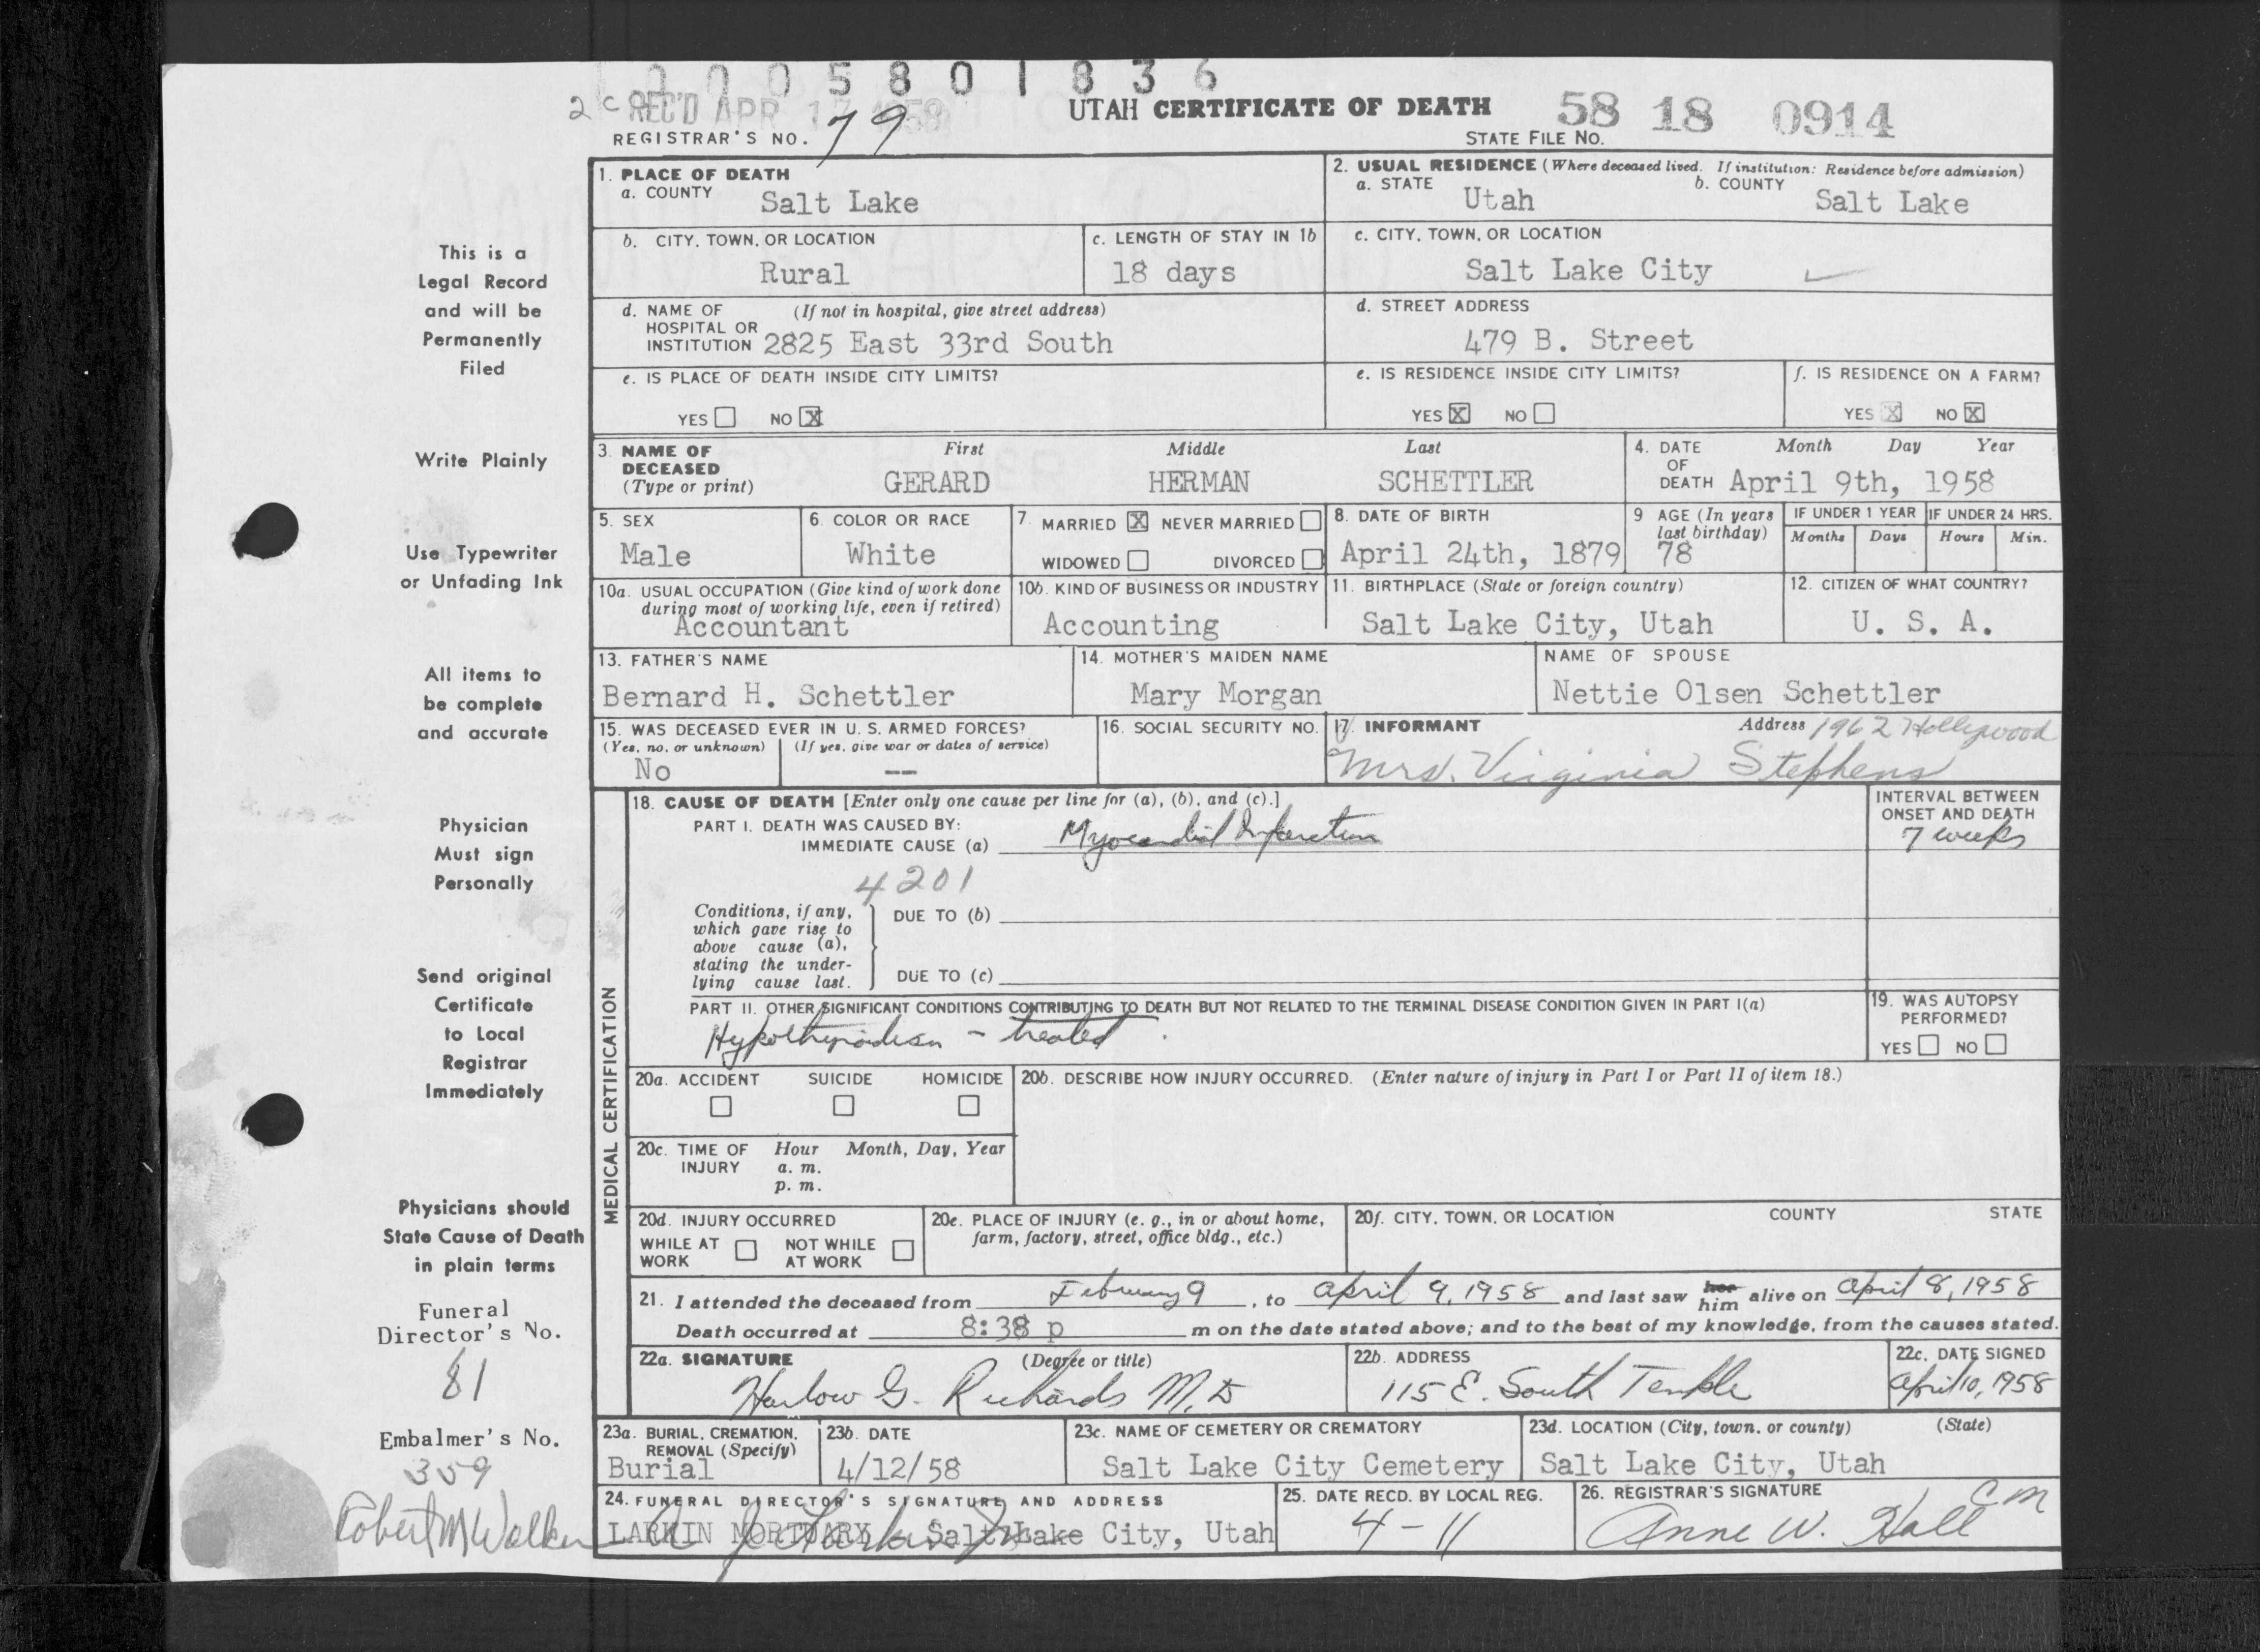 0005801836
2 c REC'D APR 17 1958
UTAH CERTIFICATE OF DEATH 58 18 0914
REGISTRAR'S NO. 79 STATE FILE NO.
1. PLACE OF DEATH
a. COUNTY Salt Lake
2. USUAL RESIDENCE (Where deceased lived. If institution: Residence before admission)
a. STATE Utah b. COUNTY Salt Lake
b. CITY, TOWN, OR LOCATION Rural
c. LENGTH OF STAY IN 1b 18 days
c. CITY, TOWN, OR LOCATION Salt Lake City
d. NAME OF HOSPITAL OR INSTITUTION (If not in hospital, give street address) 2825 East 33rd South
d. STREET ADDRESS 479 B. Street
e. IS PLACE OF DEATH INSIDE CITY LIMITS?
YES NO X
e. IS RESIDENCE INSIDE CITY LIMITS?
YES X NO
f. IS RESIDENCE ON A FARM?
YES X NO X
3. NAME OF DECEASED (Type or print)
First Middle Last
GERARD HERMAN SCHETTLER
4. DATE OF DEATH Month Day Year
April 9th, 1958
5. SEX Male
6. COLOR OR RACE White
7. MARRIED X NEVER MARRIED
WIDOWED DIVORCED
8. DATE OF BIRTH April 24th, 1879
9 AGE (In years last birthday) 78
IF UNDER 1 YEAR Months Days
IF UNDER 24 HRS. Hours Min.
10a. USUAL OCCUPATION (Give kind of work done during most of working life, even if retired) Accountant
10b. KIND OF BUSINESS OR INDUSTRY Accounting
11. BIRTHPLACE (State or foreign country) Salt Lake City, Utah
12. CITIZEN OF WHAT COUNTRY? U. S. A.
13. FATHER'S NAME Bernard H. Schettler
14. MOTHER'S MAIDEN NAME Mary Morgan
NAME OF SPOUSE Nettie Olsen Schettler
15. WAS DECEASED EVER IN U. S. ARMED FORCES?
(Yes, no, or unknown) No (If yes, give war or dates of service) --
16. SOCIAL SECURITY NO.
17. INFORMANT Address 1962 Hollywood
Mrs. Virginia Stephens
MEDICAL CERTIFICATION
18. CAUSE OF DEATH [Enter only one cause per line for (a), (b), and (c).]
INTERVAL BETWEEN ONSET AND DEATH
PART I. DEATH WAS CAUSED BY:
IMMEDIATE CAUSE (a) Myocardial Infarction 7 weeks
4201
Conditions, if any, which gave rise to above cause (a), stating the underlying cause last.
DUE TO (b)
DUE TO (c)
PART II. OTHER SIGNIFICANT CONDITIONS CONTRIBUTING TO DEATH BUT NOT RELATED TO THE TERMINAL DISEASE CONDITION GIVEN IN PART I(a)
Hypothyroidism - treated
19. WAS AUTOPSY PERFORMED?
YES NO
20a. ACCIDENT SUICIDE HOMICIDE
20b. DESCRIBE HOW INJURY OCCURRED. (Enter nature of injury in Part I or Part II of item 18.)
20c. TIME OF INJURY Hour Month, Day, Year
a. m.
p. m.
20d. INJURY OCCURRED
WHILE AT WORK NOT WHILE AT WORK
20e. PLACE OF INJURY (e. g., in or about home, farm, factory, street, office bldg., etc.)
20f. CITY, TOWN, OR LOCATION COUNTY STATE
21. I attended the deceased from February 9, to April 9, 1958 and last saw her him alive on April 8, 1958
Death occurred at 8:38 p m on the date stated above; and to the best of my knowledge, from the causes stated.
22a. SIGNATURE (Degree or title) Harlow G. Richards M.D
22b. ADDRESS 115 E. South Temple
22c. DATE SIGNED April 10, 1958
23a. BURIAL, CREMATION, REMOVAL (Specify) Burial
23b. DATE 4/12/58
23c. NAME OF CEMETERY OR CREMATORY Salt Lake City Cemetery
23d. LOCATION (City, town, or county) (State) Salt Lake City, Utah
24. FUNERAL DIRECTOR'S SIGNATURE AND ADDRESS
LARKIN MORTUARY Salt Lake City, Utah
25. DATE RECD. BY LOCAL REG. 4-11
26. REGISTRAR'S SIGNATURE Anne W. Hall CM
This is a
Legal Record
and will be
Permanently
Filed
Write Plainly
Use Typewriter
or Unfading Ink
All items to
be complete
and accurate
Physician
Must sign
Personally
Send original
Certificate
to Local
Registrar
Immediately
Physicians should
State Cause of Death
in plain terms
Funeral
Director's No.
81
Embalmer's No.
359
Robert M Walker